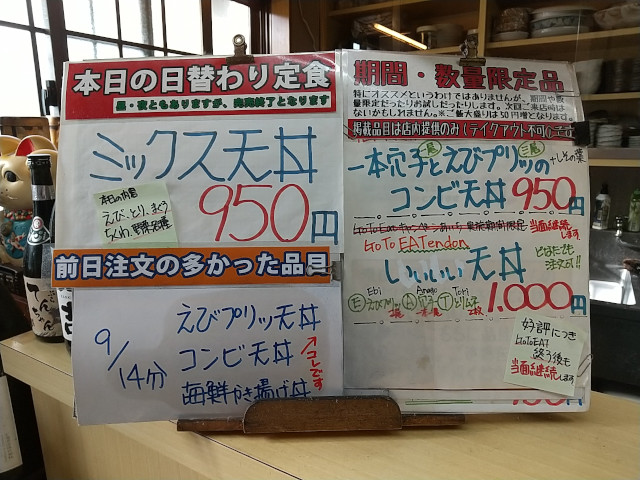 本日の日替わり定食
昼・夜ともありますが、売売終了となります
ミックス天丼
950円
本日の内容
えび、とり、まぐろ
ちくわ、野菜2種
前日注文の多かった品目
9/14分
えびプリッ天丼
コンビ天丼
海鮮かき揚げ丼
コレです
期間・数量限定品
特にオススメというわけではありませんが、期間や数
量限定だったりお試しだったりします。次回ご来店時は
ないかもしれません。※ご飯大盛りは50円増となります。
掲載品目は店内提供のみ(テイクアウト不可
一本穴子とえびプリッの
一尾
三尾
+しその葉
コンビ天丼 950円
GoToEatキャンペーン
期間限定
当面継続します。
GoTo EATendon
いいいい天丼
どなたでも
注文可!!
Ebi
Anago
Tori
E えびプリッ A 穴子 T とり
1.000円
好評につき
GoToEAT
終了後も
当面継続します。